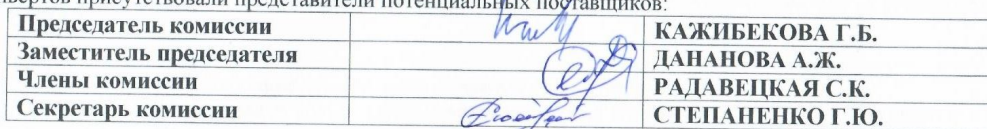 присутствовали представители потенциальных поставщиков:
Председатель комиссии КАЖИБЕКОВА Г.Б.
Заместитель председателя ДАНАНОВА А.Ж.
Члены комиссии РАДАВЕЦКАЯ С.К.
Секретарь комиссии СТЕПАНЕНКО Г.Ю.